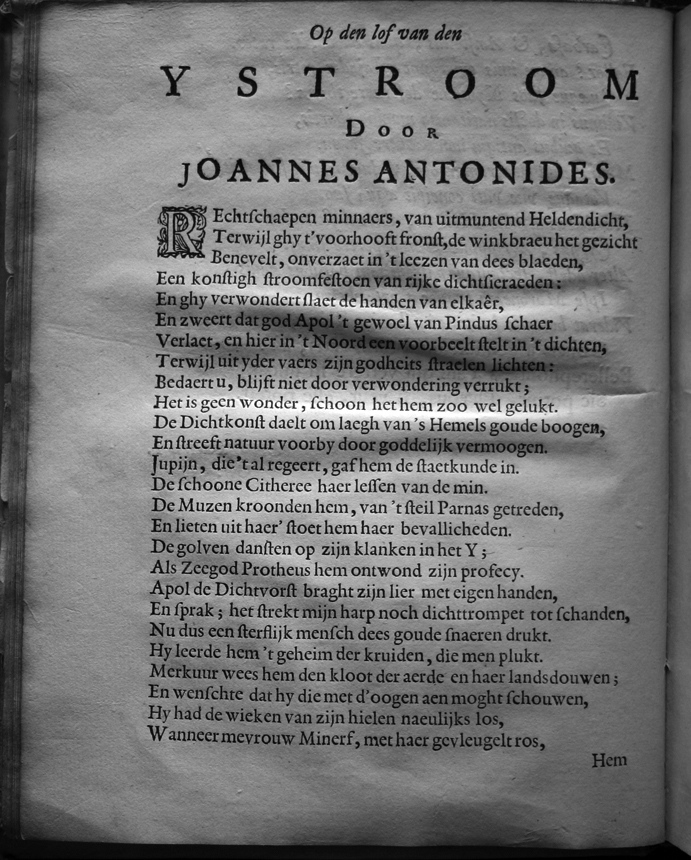 Op den lof van den
YSTROOM
DOOR
JOANNES ANTONIDES.
REchtſchaepen minnaers, van uitmuntend Heldendicht,
Terwijl ghy t'voorhooft fronſt, de winkbraeu het gezicht
Benevelt, onverzaet in 't leezen van dees blaeden,
Een konſtigh ſtroomfeſtoen van rijke dichtſieraeden:
En ghy verwondert ſlaet de handen van elkaêr,
En zweert dat god Apol 't gewoel van Pindus ſchaer
Verlaet, en hier in 't Noord een voorbeelt ſtelt in 't dichten,
Terwijl uit yder vaers zijn godheits ſtraelen lichten:
Bedaert u, blijft niet door verwondering verrukt;
Het is geen wonder, ſchoon het hem zoo wel gelukt.
De Dichtkonſt daelt om laegh van 's Hemels goude boogen,
En ſtreeft natuur voorby door goddelijk vermoogen.
Jupijn, die 't al regeert, gaf hem de ſtaetkunde in.
De ſchoone Citheree haer leſſen van de min.
De Muzen kroonden hem, van 't ſteil Parnas getreden,
En lieten uit haer' ſtoet hem haer bevallicheden.
De golven danſten op zijn klanken in het Y;
Als Zeegod Protheus hem ontwond zijn profecy.
Apol de Dichtvorſt braght zijn lier met eigen handen,
En ſprak; het ſtrekt mijn harp noch dichttrompet tot ſchanden,
Nu dus een ſterflijk menſch dees goude ſnaeren drukt.
Hy leerde hem 't geheim der kruiden, die men plukt.
Merkuur wees hem den kloot der aerde en haer landsdouwen;
En wenſchte dat hy die met d'oogen aen moght ſchouwen,
Hy had de wieken van zijn hielen naeulijks los,
Wanneer mevrouw Minerf, met haer gevleugelt ros,
Hem